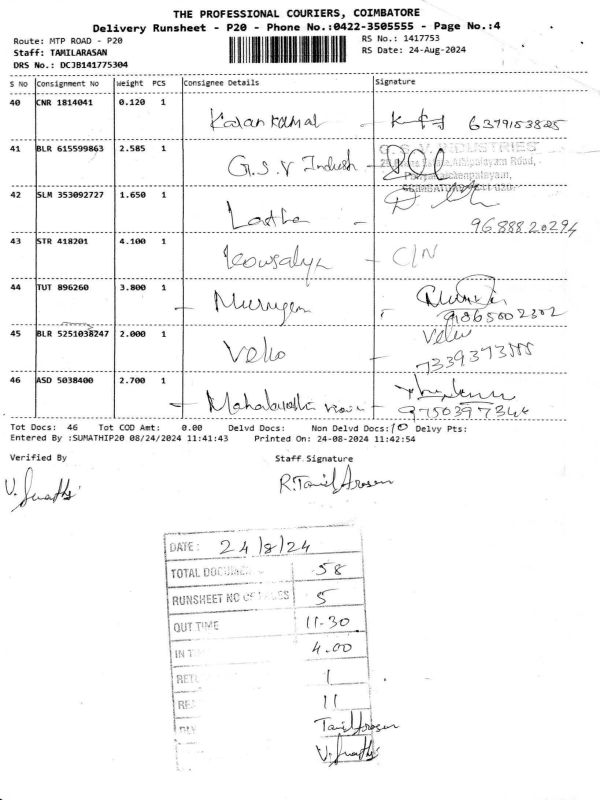 THE PROFESSIONAL COURIERS, COIMBATORE
Delivery Runsheet - P20 - Phone No.:0422-3505555 - Page No.:4
Route: MTP ROAD - P20 RS No.: 1417753
Staff: TAMILARASAN RS Date: 24-Aug-2024
DRS No.: DCJB141775304
S No Consignment No Weight PCS Consignee Details Signature
40 CNR 1814041 0.120 1
6379153825
41 BLR 615599863 2.585 1
G.S.V INDUSTRIES
G.S.V
42 SLM 353092727 1.650 1
Latha - 9688820294
43 STR 418201 4.100 1
Kowsalya - C/N
44 TUT 896260 3.800 1
- Murugan
9865002302
45 BLR 5251038247 2.000 1
Velu - Velu
46 ASD 5038400 2.700 1
9750397344
Tot Docs: 46 Tot COD Amt: 0.00 Delvd Docs: Non Delvd Docs: 10 Delvy Pts:
Entered By :SUMATHIP20 08/24/2024 11:41:43 Printed On: 24-08-2024 11:42:54
Verified By Staff Signature
R.TamilArasan
DATE: 24/8/24
TOTAL DOCUMEN 58
RUNSHEET NO OF 5
OUT TIME 11-30
IN T 4.00
RET 1
RE 11
TamilArasan